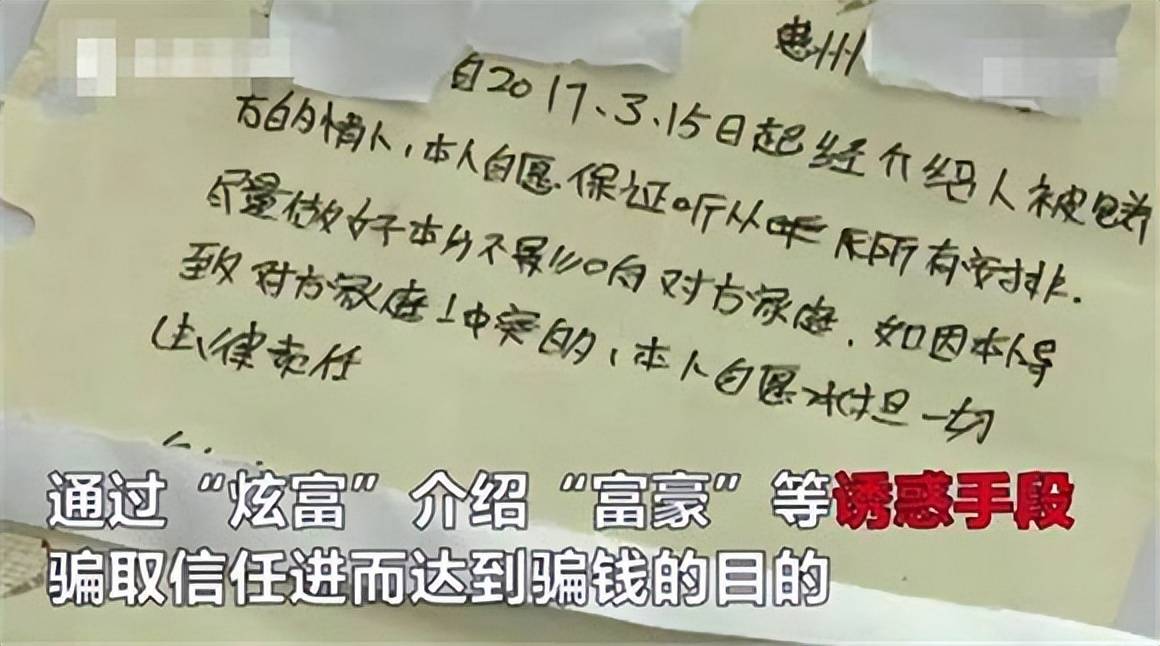 惠州
自2017.3.15日起经介绍人被
方的情人，本人自愿保证听从所有安排.
尽量做好本分不影响对方家庭.如因本人导
致对方家庭上冲突的，本人自愿承担一切
法律责任
通过“炫富”介绍“富豪”等诱惑手段
骗取信任进而达到骗钱的目的